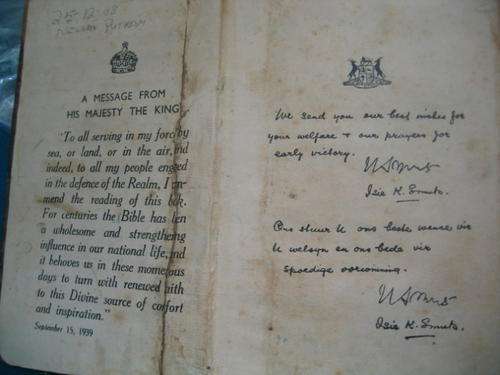 25-12-08
A MESSAGE FROM
HIS MAJESTY THE KING
"To all serving in my forc by
sea, or land, or in the air, and
indeed, to all my people eng ed
in the defence of the Realm, I
mend the reading of this b k.
For centuries the Bible has en
a wholesome and strengthening
influence in our national life, and
it behoves us in these mom ous
days to turn with renewed ith
to this Divine source of co fort
and inspiration."
September 15, 1939
We send you our best wishes for
your welfare & our prayers for
early victory.
Isie K. Smuts.
Ons stuur U ons beste wense vir
U welsyn en ons bede vir
spoedige oorwinning.
Isie K. Smuts.